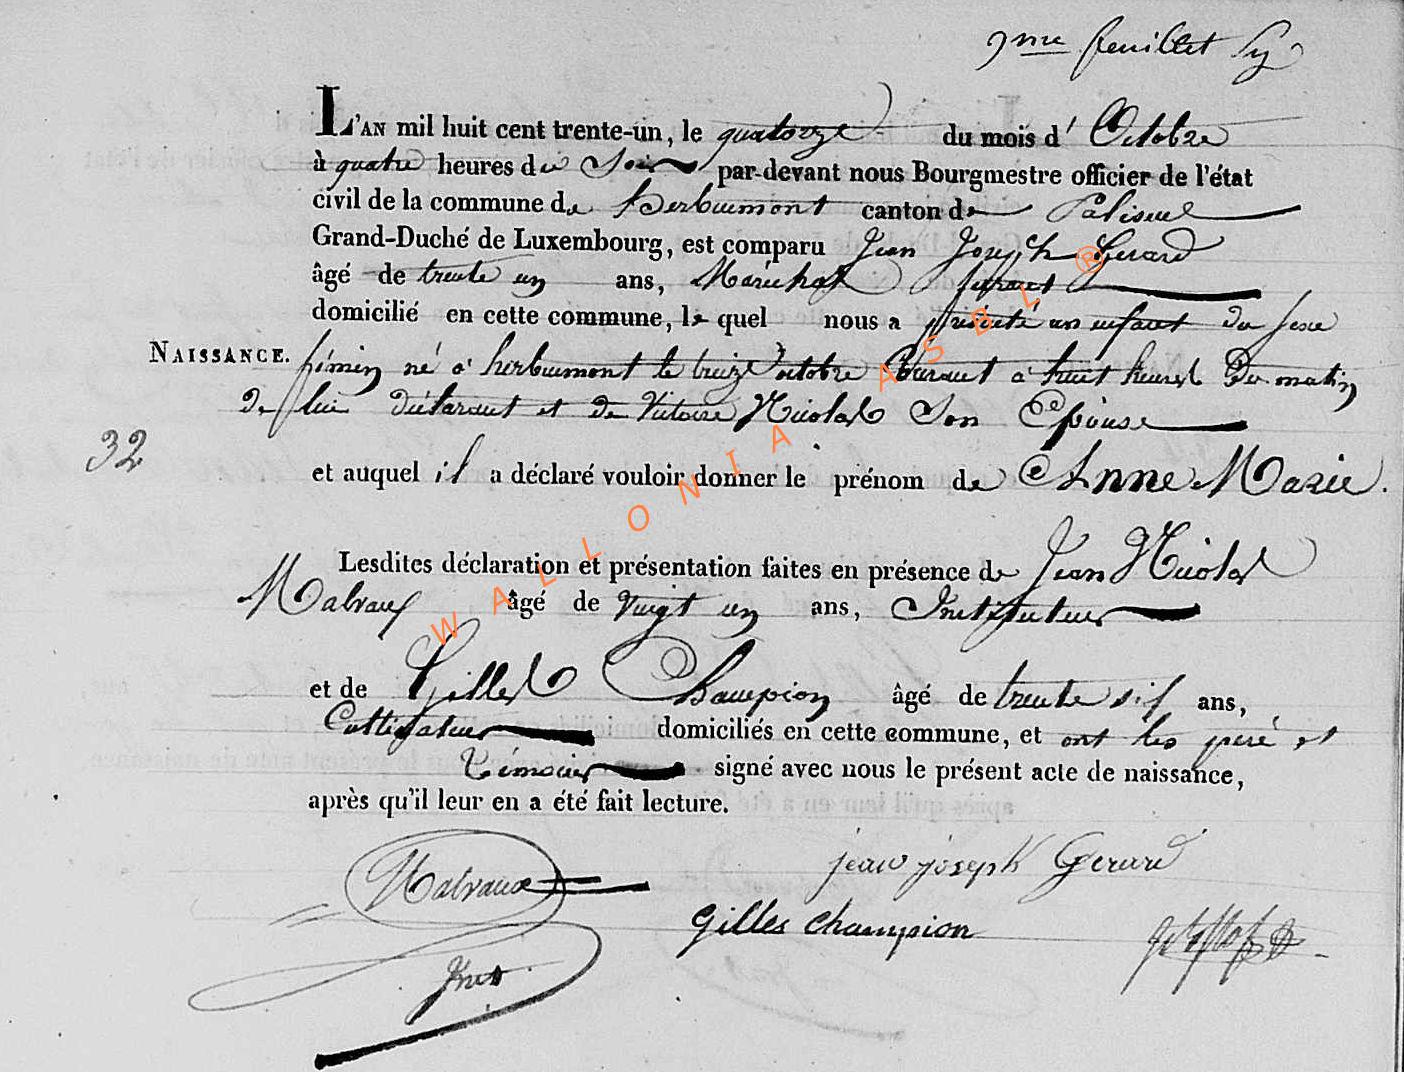 9me feuillet
L'AN mil huit cent trente-un, le quatorze du mois d' Octobre
à quatre heures du Soir par-devant nous Bourgmestre officier de l'état
civil de la commune de herbeumont canton de Paliseul
Grand-Duché de Luxembourg, est comparu Jean Joseph Gerard
âgé de trente un ans, Maréchal ferrant
domicilié en cette commune, le quel nous a présenté un enfant du sexe
NAISSANCE. féminin né à herbeumont le treize octobre Courant à huit heures Du matin
de lui déclarant et de Victoire Nicolas Son Epouse
32
et auquel il a déclaré vouloir donner le prénom de Anne Marie.
Lesdites déclaration et présentation faites en présence de Jean Nicolas
Malvaux âgé de vingt un ans, Instituteur
et de Gilles Champion âgé de trente six ans,
Cultivateur domiciliés en cette commune, et ont les père et
Témoins signé avec nous le présent acte de naissance,
après qu'il leur en a été fait lecture.
Malvaux
jean joseph Gerard
gilles champion
WALLONIA ASBL ®